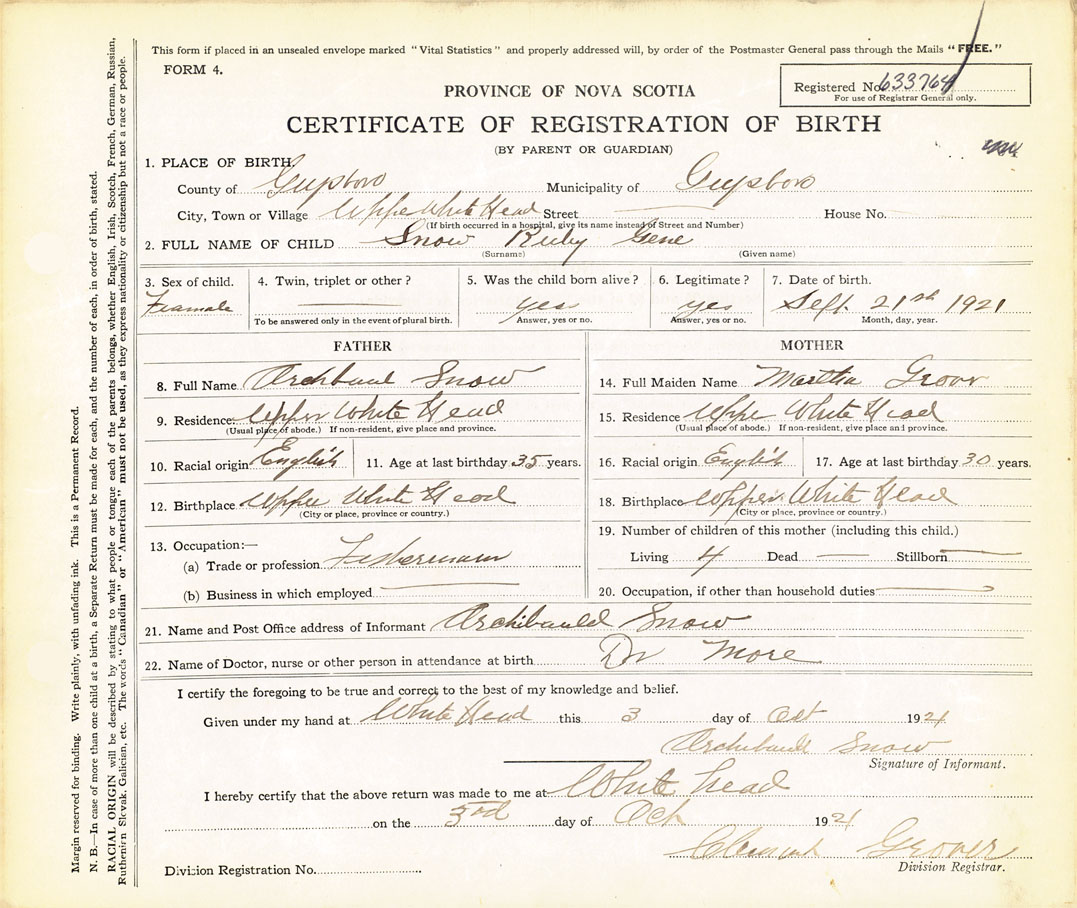 This form if placed in an unsealed envelope marked "Vital Statistics" and properly addressed will, by order of the Postmaster General pass through the Mails "FREE."
FORM 4.
Registered No. 633764
For use of Registrar General only.
PROVINCE OF NOVA SCOTIA
CERTIFICATE OF REGISTRATION OF BIRTH
(BY PARENT OR GUARDIAN)
1. PLACE OF BIRTH
County of Guysboro Municipality of Guysboro
City, Town or Village Uppe White Head Street House No.
(If birth occurred in a hospital, give its name instead of Street and Number)
2. FULL NAME OF CHILD Snow Ruby Gene
(Surname) (Given name)
3. Sex of child. 4. Twin, triplet or other? 5. Was the child born alive? 6. Legitimate? 7. Date of birth.
Feamale yes yes Sept. 21st 1921
To be answered only in the event of plural birth. Answer, yes or no. Answer, yes or no. Month, day, year.
FATHER
8. Full Name Snow
9. Residence: Upper White Head
(Usual place of abode.) If non-resident, give place and province.
10. Racial origin English 11. Age at last birthday 35 years.
12. Birthplace Uppe White Head
(City or place, province or country.)
13. Occupation:—
(a) Trade or profession Fishermann
(b) Business in which employed
MOTHER
14. Full Maiden Name Martha Grover
15. Residence Uppe White Head
(Usual place of abode.) If non-resident, give place and province.
16. Racial origin English 17. Age at last birthday 30 years.
18. Birthplace Upper White Head
(City or place, province or country.)
19. Number of children of this mother (including this child.)
Living 4 Dead — Stillborn —
20. Occupation, if other than household duties
21. Name and Post Office address of Informant Archibauld Snow
22. Name of Doctor, nurse or other person in attendance at birth Dr More
I certify the foregoing to be true and correct to the best of my knowledge and belief.
Given under my hand at White Head this 3 day of Oct 1921
Archibauld Snow
Signature of Informant.
I hereby certify that the above return was made to me at White head
on the 3rd day of Oct 1921
Clement Grover
Division Registrar.
Division Registration No.
Margin reserved for binding. Write plainly, with unfading ink. This is a Permanent Record.
N. B.—In case of more than one child at a birth, a Separate Return must be made for each, and the number of each, in order of birth, stated.
RACIAL ORIGIN will be described by stating to what people or tongue each of the parents belongs, whether English, Irish, Scotch, French, German, Russian,
Ruthenirn Slovak, Galician, etc. The words "Canadian" or "American" must not be used, as they express nationality or citizenship but not a race or people.